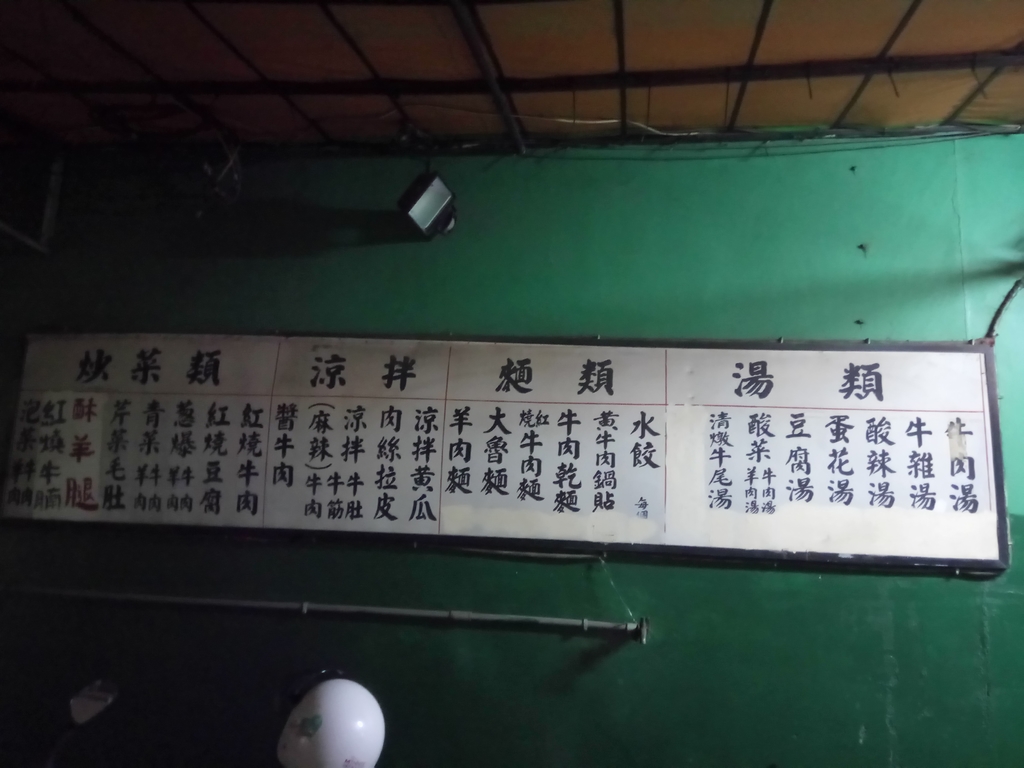 湯類
牛肉湯
牛雜湯
酸辣湯
蛋花湯
豆腐湯
酸菜牛肉湯羊肉湯
清燉牛尾湯
麵類
水餃 每個
黃牛肉鍋貼
牛肉乾麵
紅燒牛肉麵
大魯麵
羊肉麵
涼拌
涼拌黃瓜
肉絲拉皮
涼拌牛肚牛筋
(麻辣)牛肉
醬牛肉
炒菜類
紅燒牛肉
紅燒豆腐
蔥爆牛肉羊肉
青菜牛肉羊肉
芹菜毛肚
酥羊腿
紅燒牛腩
泡菜牛肉羊肉